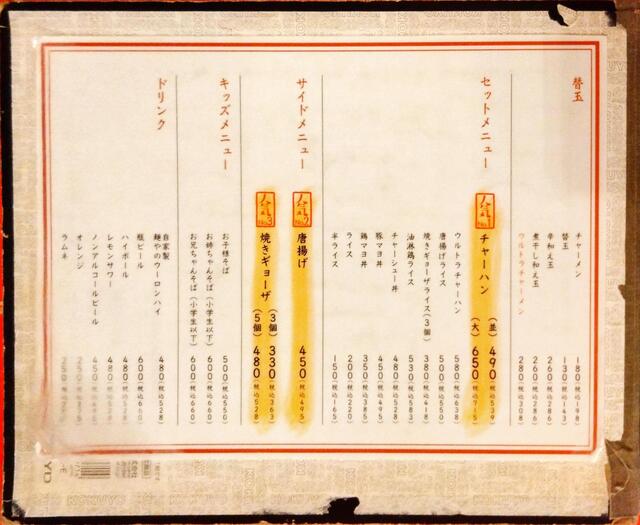 替玉
チャーメン 180(税込198)
替玉 130(税込143)
辛和え玉 260(税込286)
煮干し和え玉 260(税込286)
ウルトラチャーメン 280(税込308)
セットメニュー
人気 No.1 チャーハン (並) 490(税込539)
(大) 650(税込715)
ウルトラチャーハン 580(税込638)
唐揚げライス 500(税込550)
焼きギョーザライス(3個) 380(税込418)
油淋鶏ライス 530(税込583)
チャーシュー丼 480(税込528)
豚マヨ丼 450(税込495)
鶏マヨ丼 350(税込385)
ライス 200(税込220)
半ライス 150(税込165)
サイドメニュー
人気 No.2 唐揚げ 450(税込495)
人気 No.3 焼きギョーザ (3個) 330(税込363)
(5個) 480(税込528)
キッズメニュー
お子様そば 500(税込550)
お姉ちゃんそば(小学生以下) 600(税込660)
お兄ちゃんそば(小学生以下) 600(税込660)
ドリンク
自家製
麺やのウーロンハイ 480(税込528)
瓶ビール 600(税込660)
ハイボール 480(税込528)
レモンサワー 480(税込528)
ノンアルコールビール 450(税込495)
オレンジ 250(税込275)
ラムネ 250